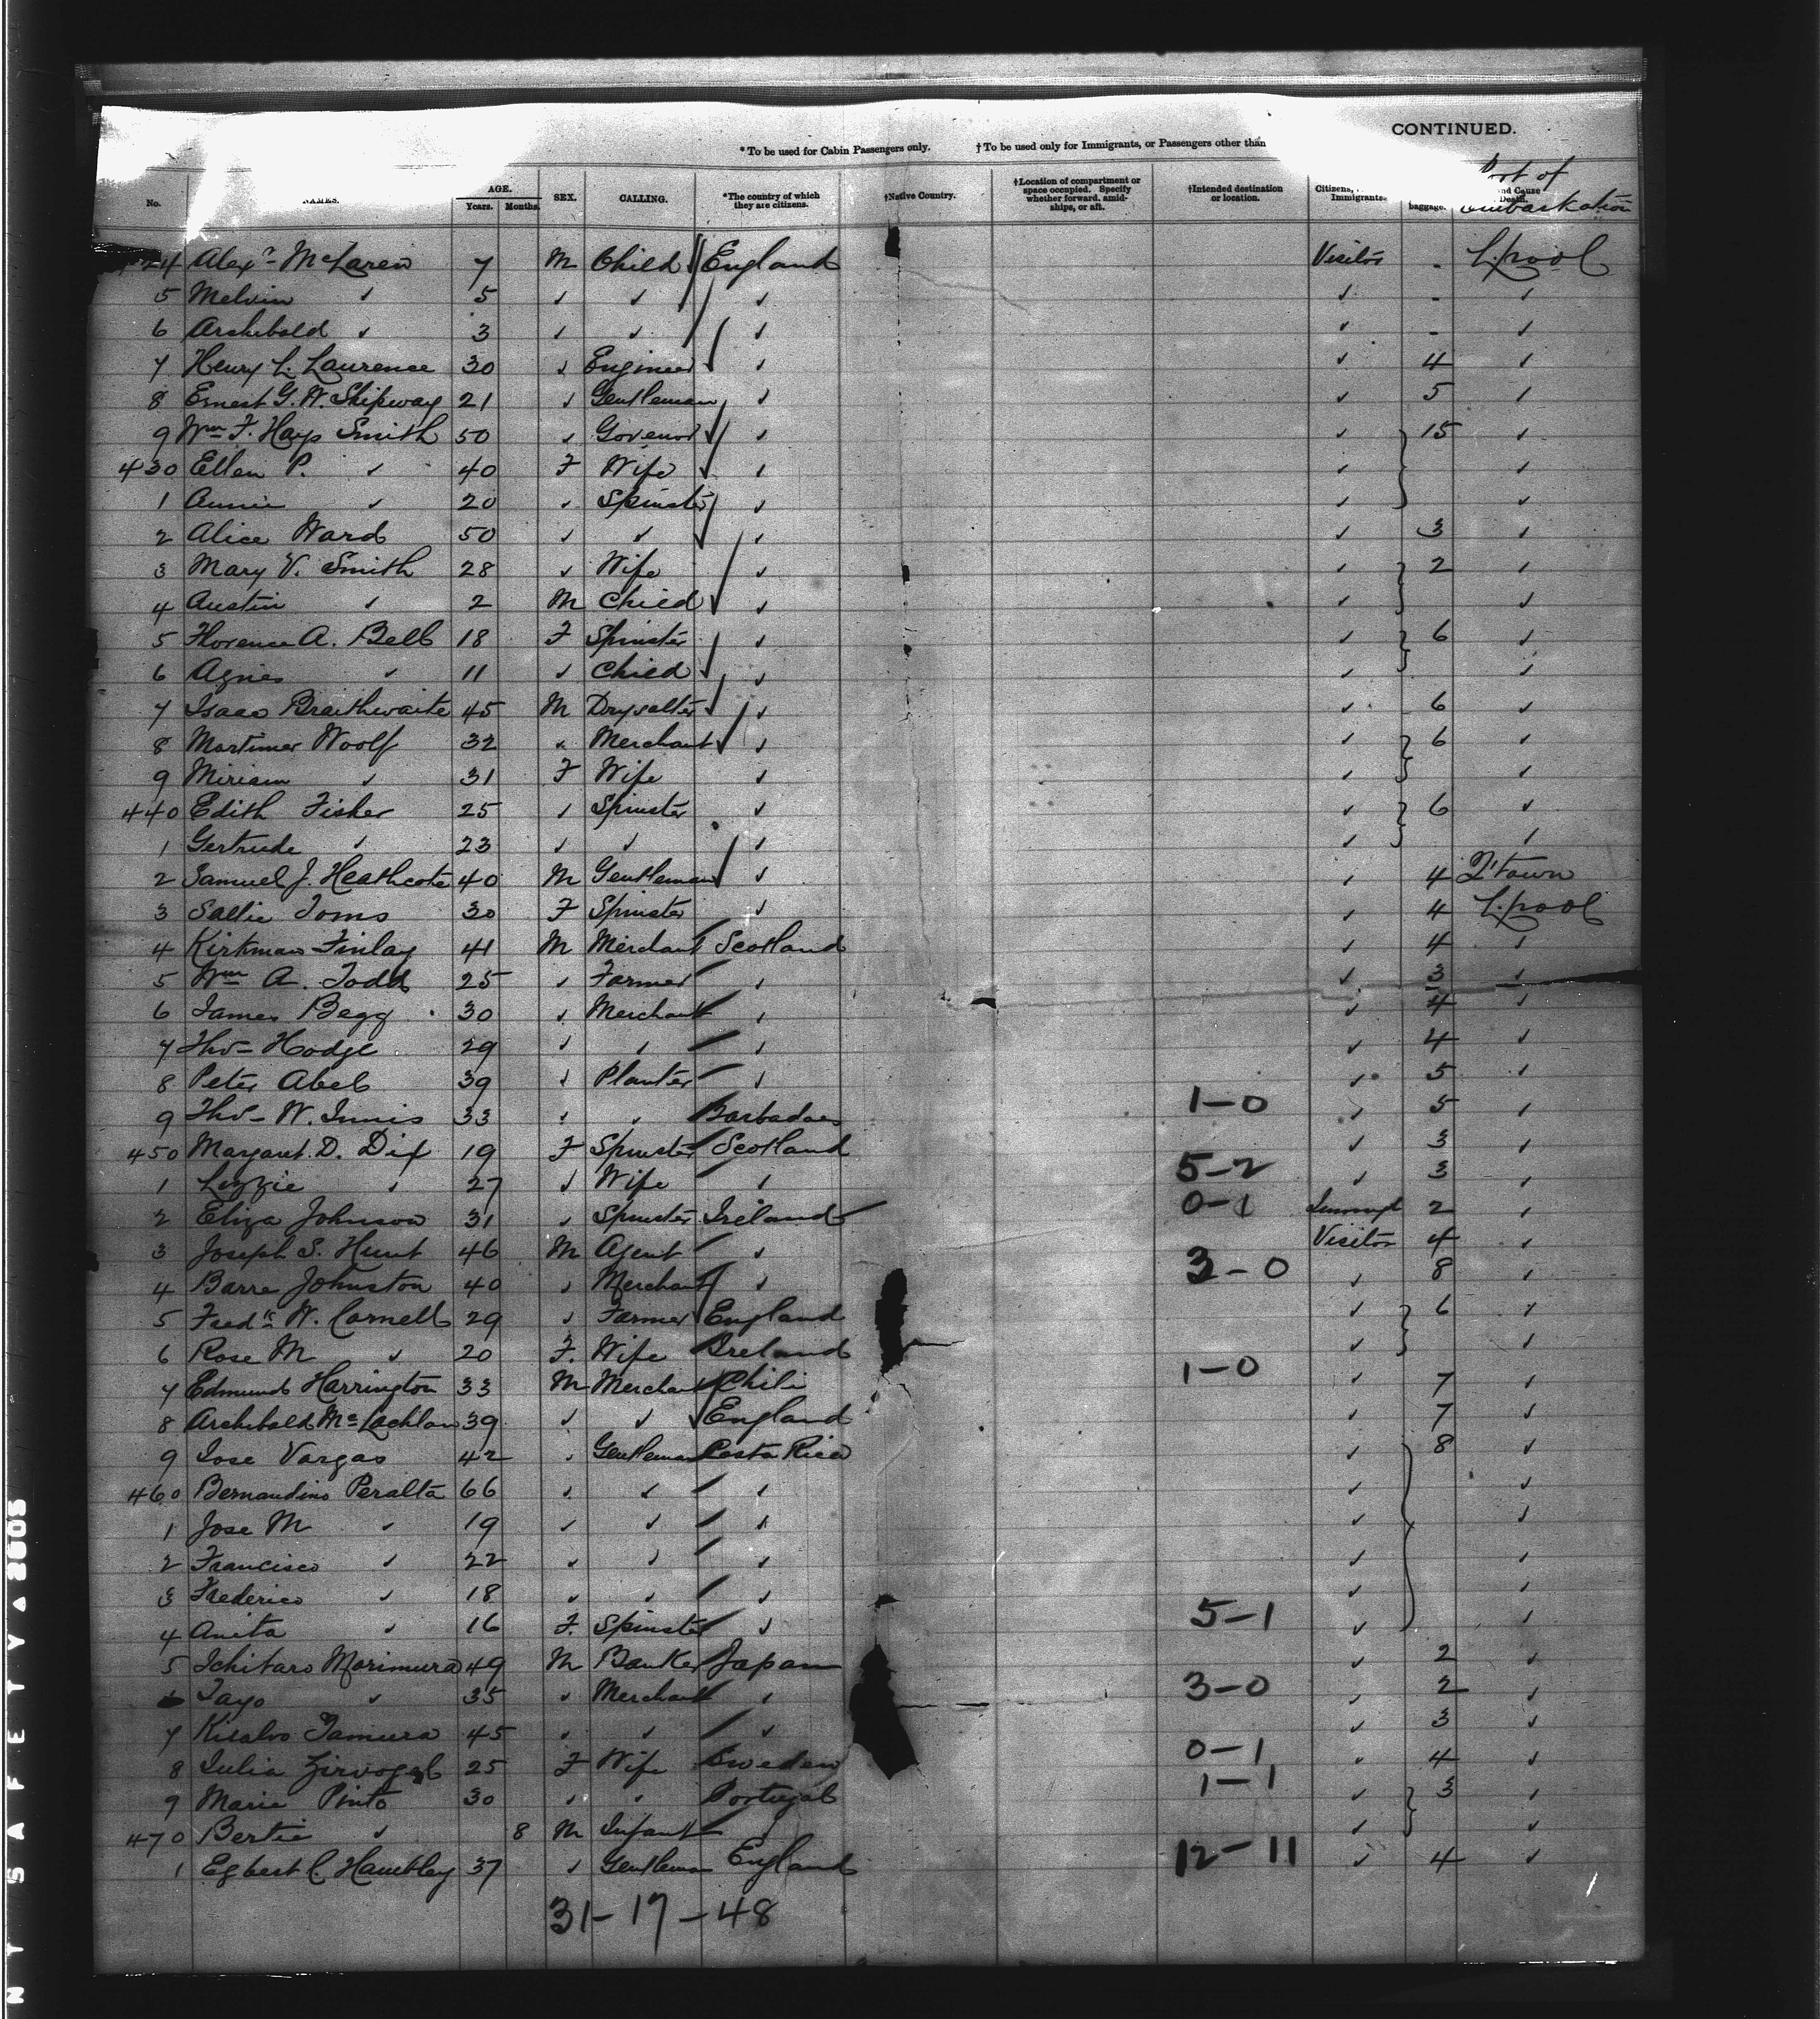 CONTINUED.
*To be used for Cabin Passengers only. †To be used only for Immigrants, or Passengers other than
Port of
Embarkation
No. NAMES. AGE. Years. Months. SEX. CALLING. *The country of which they are citizens. †Native Country. †Location of compartment or space occupied. Specify whether forward, amidships, or aft. †Intended destination or location. Citizens, Immigrants. baggage. and Cause Death.
424 Alexr McLaren 7 M Child England Visitor - L.pool
5 Melvin ✓ 5 ✓ ✓ ✓ ✓ - ✓
6 Archibald ✓ 3 ✓ ✓ ✓ ✓ - ✓
7 Henry L. Laurence 30 ✓ Engineer ✓ ✓ 4 ✓
8 Ernest G. W. Shipway 21 ✓ Gentleman ✓ ✓ 5 ✓
9 Wm F. Hays Smith 50 ✓ Govenor ✓ ✓ 15 ✓
430 Ellen P. ✓ 40 F Wife ✓ ✓ ✓
1 Annie ✓ 20 ✓ Spinster ✓ ✓ ✓
2 Alice Ward 50 ✓ ✓ ✓ ✓ 3 ✓
3 Mary V. Smith 28 ✓ Wife ✓ ✓ 2 ✓
4 Austin ✓ 2 M Child ✓ ✓ ✓
5 Florence A. Bell 18 F Spinster ✓ ✓ 6 ✓
6 Agnes ✓ 11 ✓ Child ✓ ✓ ✓
7 Isaac Braithwaite 45 M Drysalter ✓ ✓ 6 ✓
8 Mortimer Woolf 32 ✓ Merchant ✓ ✓ 6 ✓
9 Miriam ✓ 31 F Wife ✓ ✓ ✓
440 Edith Fisher 25 ✓ Spinster ✓ ✓ 6 ✓
1 Gertrude ✓ 23 ✓ ✓ ✓ ✓ ✓
2 Samuel J. Heathcote 40 M Gentleman ✓ ✓ 4 Q'town
3 Sallie Toms 30 F Spinster ✓ ✓ 4 L.pool
4 Kirkman Finlay 41 M Merchant Scotland ✓ 4 ✓
5 Wm A. Todd 25 ✓ Farmer ✓ ✓ 3 ✓
6 James Begg 30 ✓ Merchant ✓ ✓ 4 ✓
7 Thos Hodge 29 ✓ ✓ ✓ ✓ 4 ✓
8 Peter Abel 39 ✓ Planter ✓ ✓ 5 ✓
9 Thos W. Innis 33 ✓ ✓ Barbadoes 1-0 ✓ 5 ✓
450 Margaret D. Dix 19 F Spinster Scotland ✓ 3 ✓
1 Lizzie ✓ 27 ✓ Wife ✓ 5-2 ✓ 3 ✓
2 Eliza Johnson 31 ✓ Spinster Ireland 0-1 Immigt 2 ✓
3 Joseph S. Hunt 46 M Agent ✓ Visitor 4 ✓
4 Barre Johnston 40 ✓ Merchant ✓ 3-0 ✓ 8 ✓
5 Fredk W. Carnell 29 ✓ Farmer England ✓ 6 ✓
6 Rose M ✓ 20 F. Wife Ireland ✓ ✓
7 Edmund Harrington 33 M Merchant Chili 1-0 ✓ 7 ✓
8 Archibald McLachlan 39 ✓ ✓ England ✓ 7 ✓
9 Jose Vargas 42 ✓ Gentleman Costa Rica ✓ 8 ✓
460 Bernardino Peralta 66 ✓ ✓ ✓ ✓ ✓
1 Jose M ✓ 19 ✓ ✓ ✓ ✓ ✓
2 Francisco ✓ 22 ✓ ✓ ✓ ✓ ✓
3 Frederico ✓ 18 ✓ ✓ ✓ ✓ ✓
4 Anita ✓ 16 F. Spinster ✓ 5-1 ✓ ✓
5 Ichitaro Morimura 49 M Banker Japan ✓ 2 ✓
6 Tayo ✓ 35 ✓ Merchant ✓ 3-0 ✓ 2 ✓
7 Tamura 45 ✓ ✓ ✓ ✓ 3 ✓
8 Julia 25 F Wife Sweden 0-1 ✓ 4 ✓
9 Marie Pinto 30 ✓ ✓ Portugal 1-1 ✓ 3 ✓
470 Bertie ✓ 8 M Infant ✓ ✓ ✓
1 Egbert C. 37 ✓ Gentleman England 12-11 ✓ 4 ✓
31-17-48
N Y SAFETY ▲ 2005